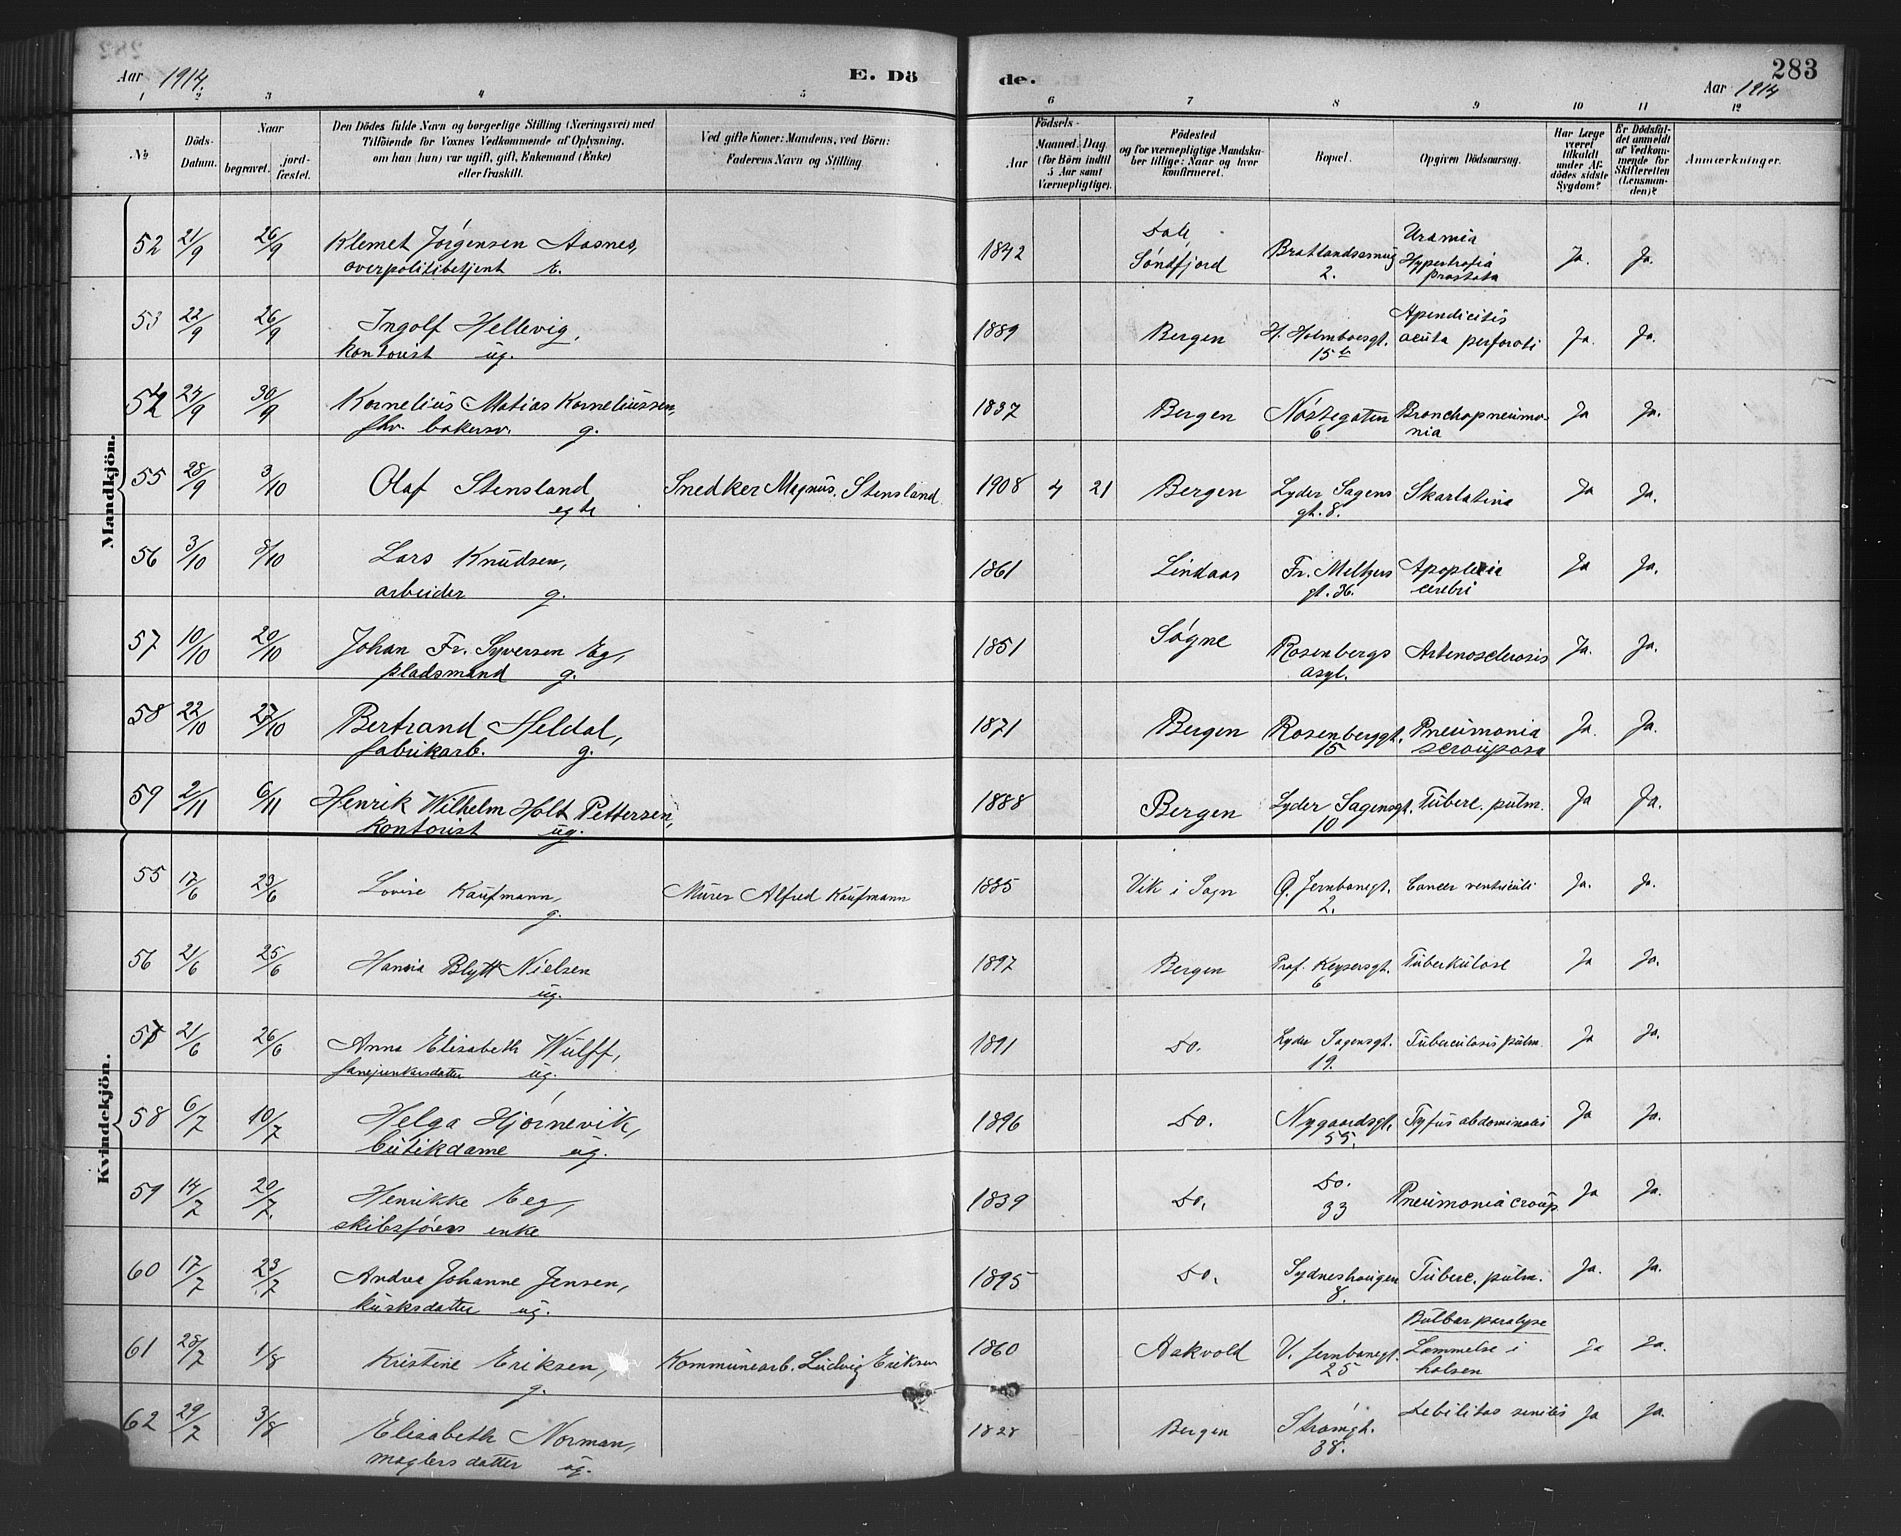 283
Aar 1914. E. Dö de. Aar 1914
1 2 3 4 5 6 7 8 9 10 11 12
No.
Döds-Datum.
Naar
begravet.
jord-fæstet.
Den Dödes fulde Navn og borgerlige Stilling (Næringsvei) med
Tilföiende for Voxnes Vedkommende af Oplysning,
om han (hun) var ugift, gift, Enkemand (Enke)
eller fraskilt.
Ved gifte Koner: Mandens, ved Börn:
Faderens Navn og Stilling.
Födsels-
Aar
Maaned. Dag.
(for Börn indtil
5 Aar samt
Værnepligtige).
Födested
og for værnepligtige Mandska-
ber tillige: Naar og hvor
konfirmeret.
Bopæl.
Opgiven Dödsaarsag.
Har Læge
været
tilkaldt
under Af-
dödes sidste
Sygdom?
Er Dödsfal-
det anmeldt
af Vedkom-
mende for
Skifteretten
(Lensman-
den)?
Anmærkninger.
Mandkjön.
52 21/9 26/9 Klemet Jörgensen Aasnes, 1842 Dale Bratlandssmug Uramia Ja. Ja.
overpolitibetjent E. Söndfjord 2. Hypertrofia
prostata
53 22/9 26/9 Ingolf Hellevig, 1889 Bergen H. Holmboesgt. Apendicitis Ja. Ja.
kontorist ug. 15 acuta perforati
54 25/9 30/9 Kornelius Matias Korneliussen, 1837 Bergen Nöstegaten Bronchopneumo- Ja Ja.
fhv. bakersv. g. 6 nia
55 28/9 3/10 Olaf Stensland Snedker Magnus Stensland 1908 4 21 Bergen Lyder Sagens Skarlatina Ja Ja.
egte gt. 8.
56 3/10 8/10 Lars Knudsen, 1861 Lindaas Fr. Meltzers Apoplexia Ja Ja.
arbeider g. gt. 36. cerebri
57 10/10 20/10 Johan Fr. Syversen Eg, 1851 Søgne Rosenbergs Arteriosclerosis Ja. Ja.
pladsmand g. asyl.
58 22/10 27/10 Bertrand Heldal, 1871 Bergen Rosenberggt. Pneumonia Ja. Ja.
fabrikarb. g. 15
59 2/11 6/11 Henrik Wilhelm Holt Pettersen, 1888 Bergen Lyder Sagensgt. Tuberc. pulm. Ja Ja.
kontorist ug. 10
Kvindekjön.
55 17/6 23/6 Lovise Kaufmann, Murer Alfred Kaufmann 1885 Vik i Sogn Ø. Jernbanegt. Cancer ventriculi Ja. Ja.
g. 2.
56 21/6 25/6 Hansia Blytt Nielsen 1897 Bergen Prof. Keysersgt. Tuberkulose Ja Ja.
ug. 6
57 21/6 26/6 Anna Elisabeth Wulff, 1891 Do. Lyder Sagensgt. Tuberculosis pulm. Ja Ja.
fanejunkersdatter ug. 19.
58 6/7 10/7 Helga Hjørnevik, 1896 Do. Nygaardsgt. Tyfus abdominalis Ja Ja.
butikdame ug. 55.
59 14/7 20/7 Henrikke Eeg, 1839 Do. Do. Pneumonia croup. Ja Ja.
skibsförers enke 33
60 17/7 23/7 Andrea Johanne Jensen, 1895 Do. Sydneshaugen Tuberc. pulm. Ja. Ja.
kusksdatter ug. 8.
61 28/7 1/8 Kristine Eriksen, Kommunearb. Ludvig Eriksen 1860 Aakvold V. Jernbanegt. Bulbærparalyse Ja Ja.
g. 25 Lammelse i
halsen
62 29/7 3/8 Elisabeth Norman, 1828 Bergen Strømgt. Debilitas senilis Ja Ja.
maglers datter ug. 38.